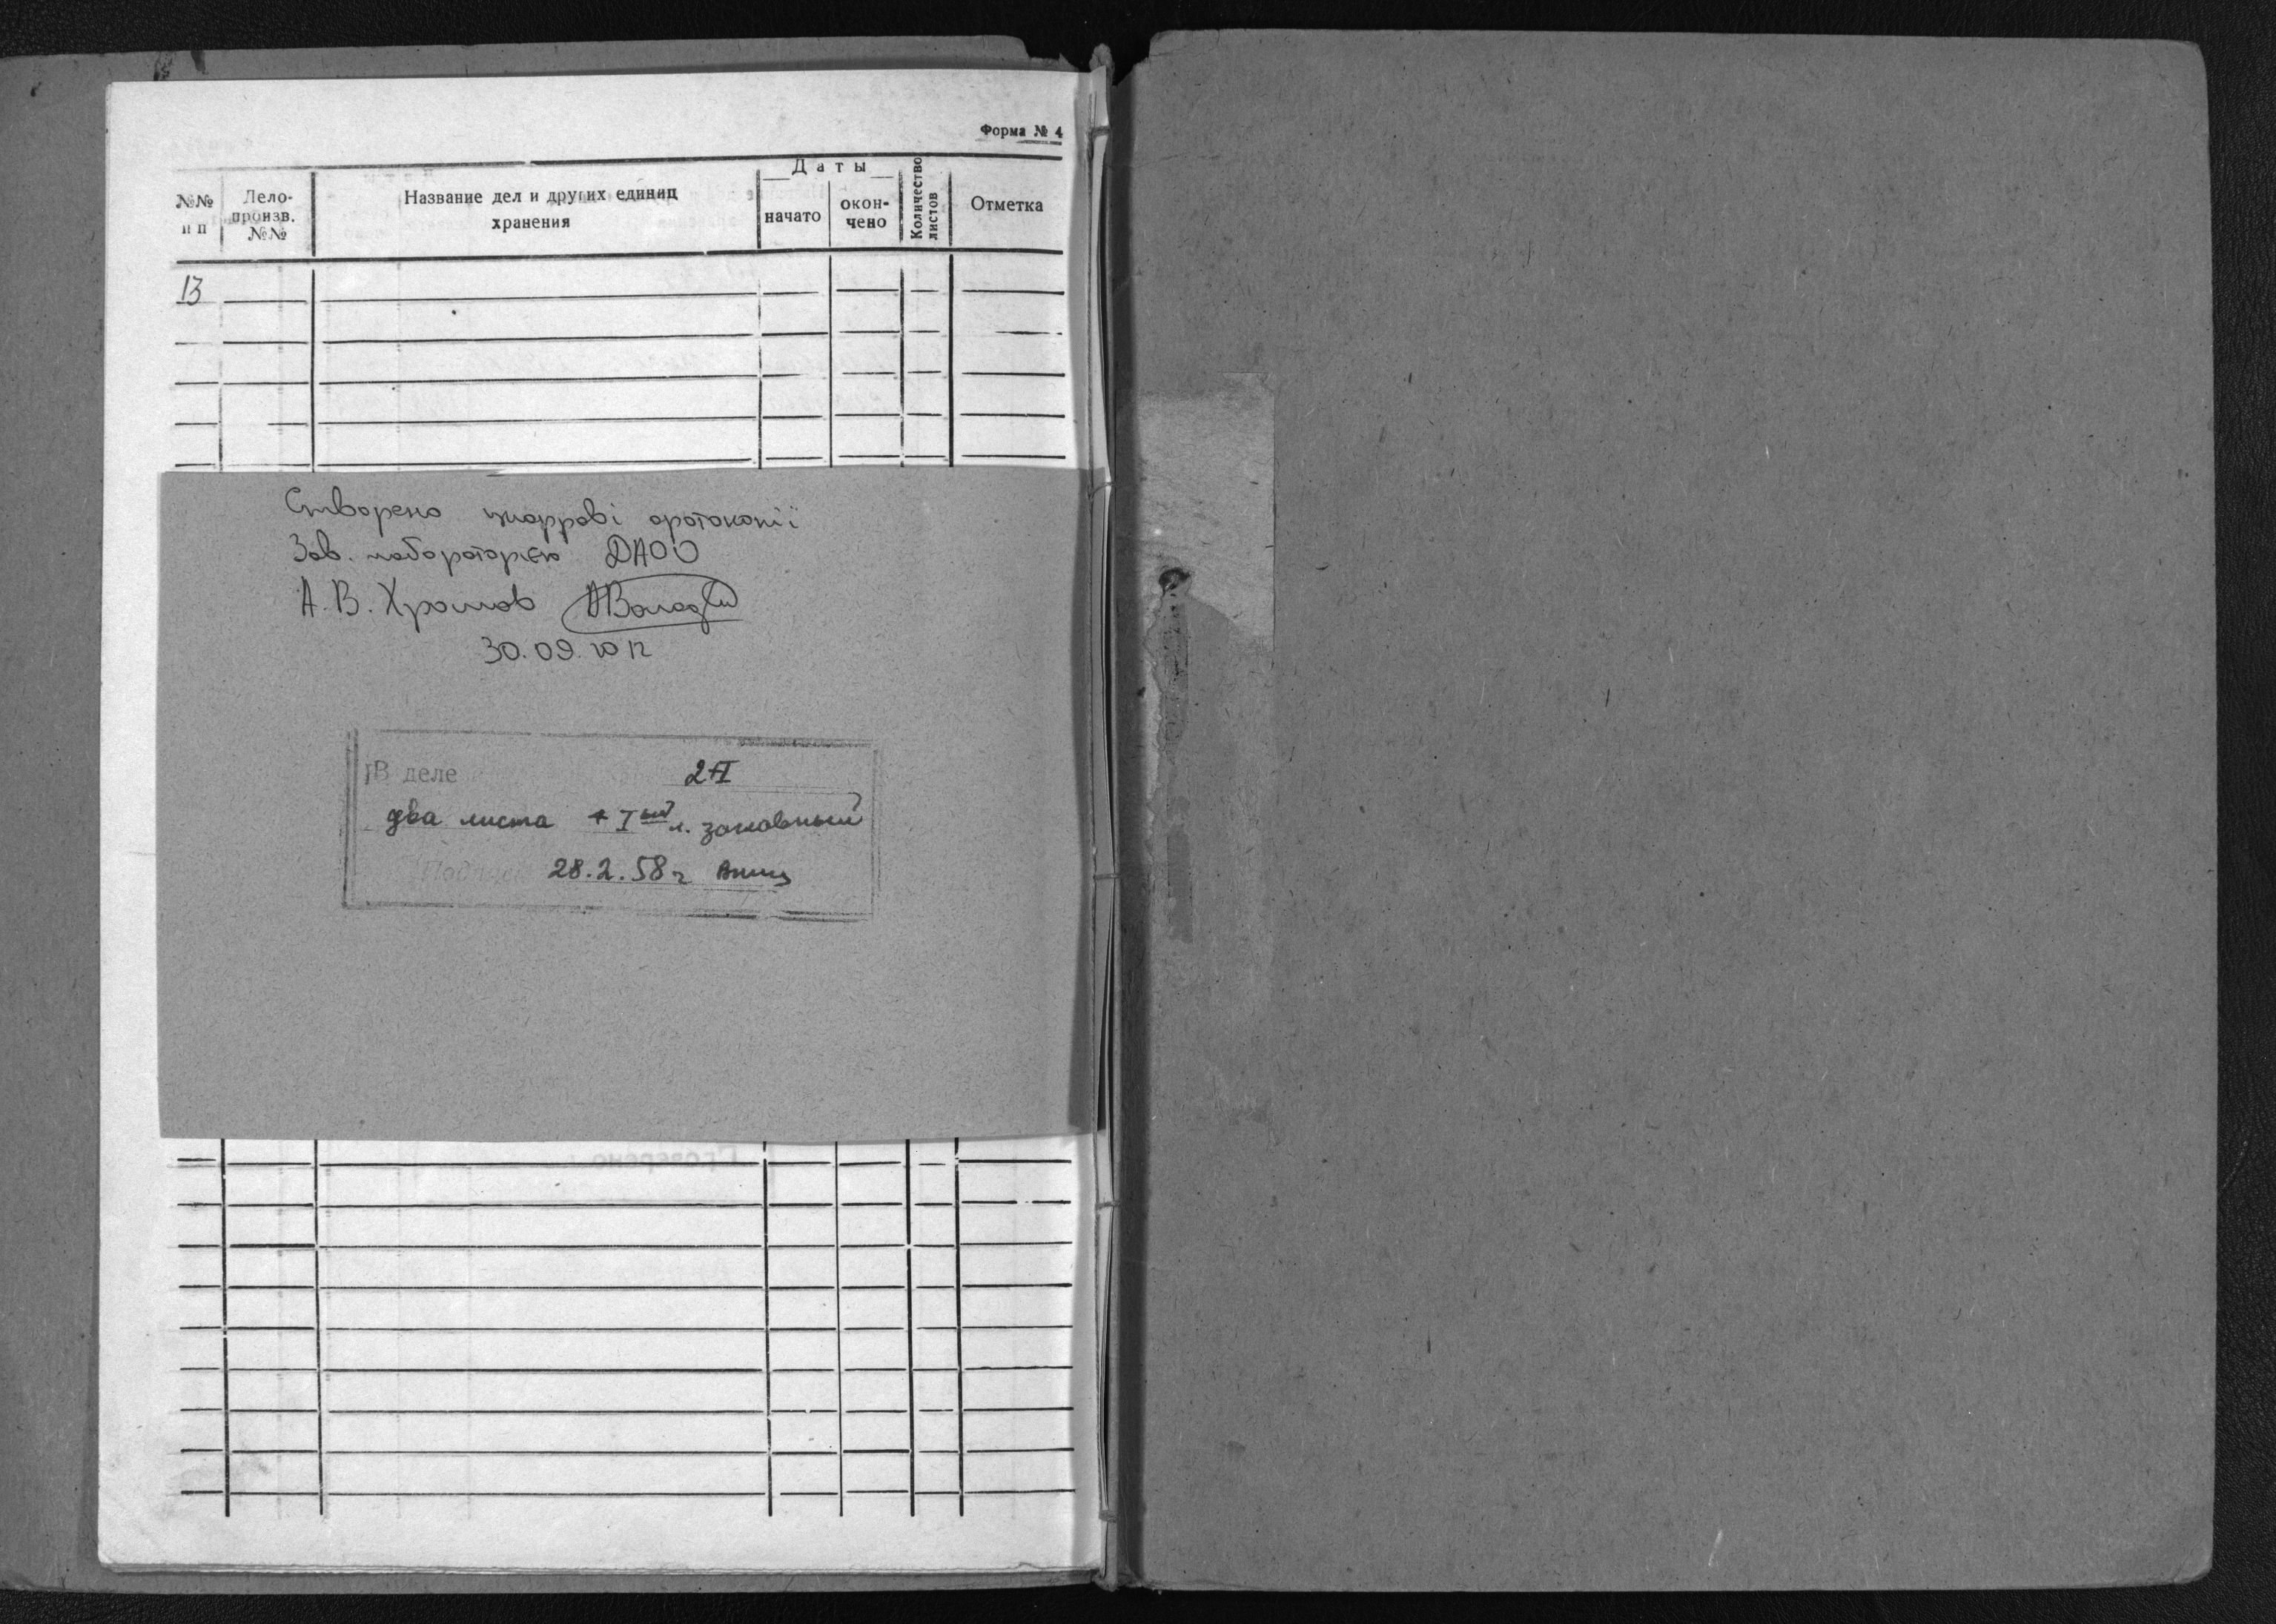 Форма № 4
№№ п п
Дело-произв. №№
Название дел и других единиц хранения
Даты
начато
окон-чено
Количество листов
Отметка
13
Створено цифрові фотокопії
Зав. лабораторією ДАОО
А. В. Хромов
30.09.2012
В деле 2+I
два листа + I ый л. заглавный
28.2.58 г